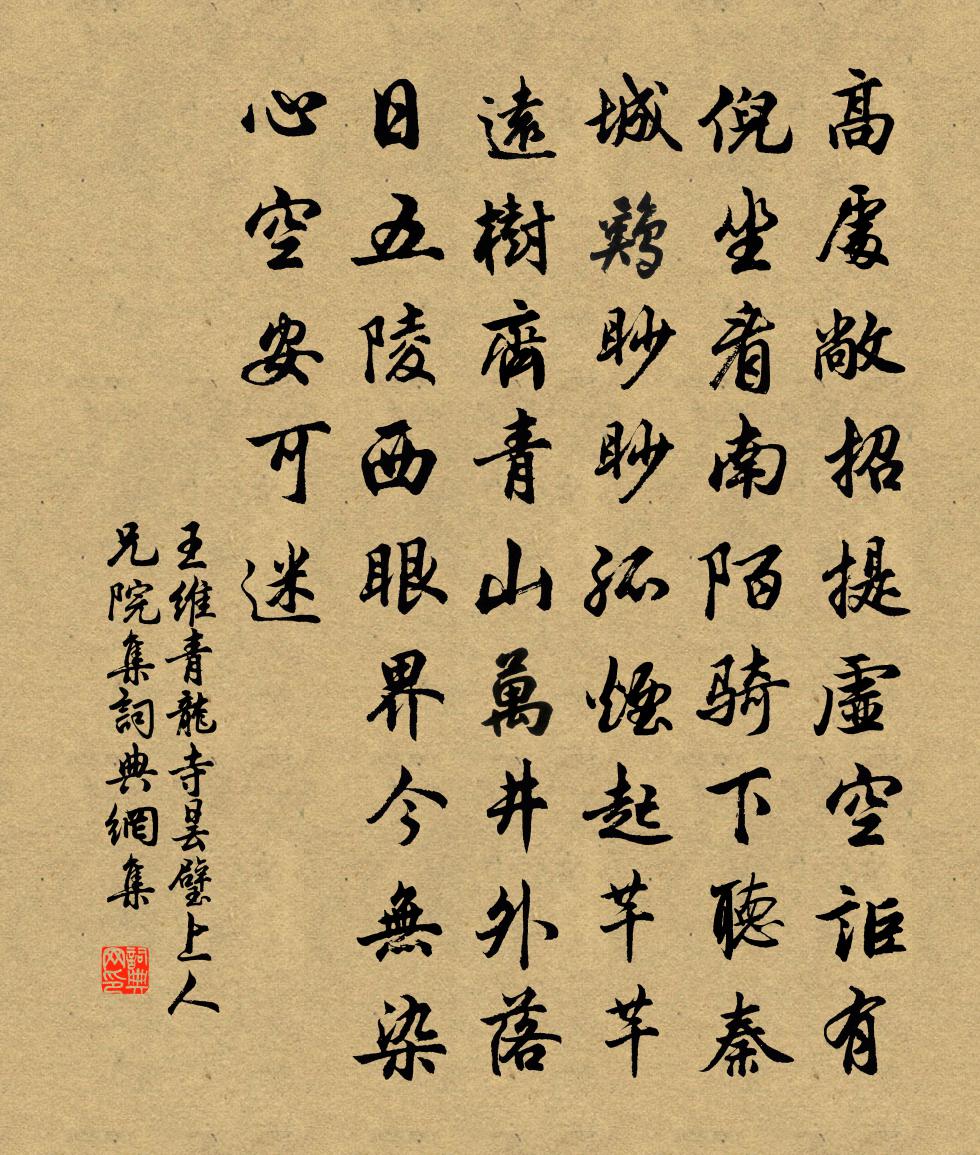 高處敞招提虛空詎有
倪坐看南陌騎下聽秦
城鷄眇眇孤煙起芊芊
遠樹齊青山萬井外落
日五陵西眼界今無染
心空安可迷
王維青龍寺曇璧上人
兄院集詞典網集
詞典
网印